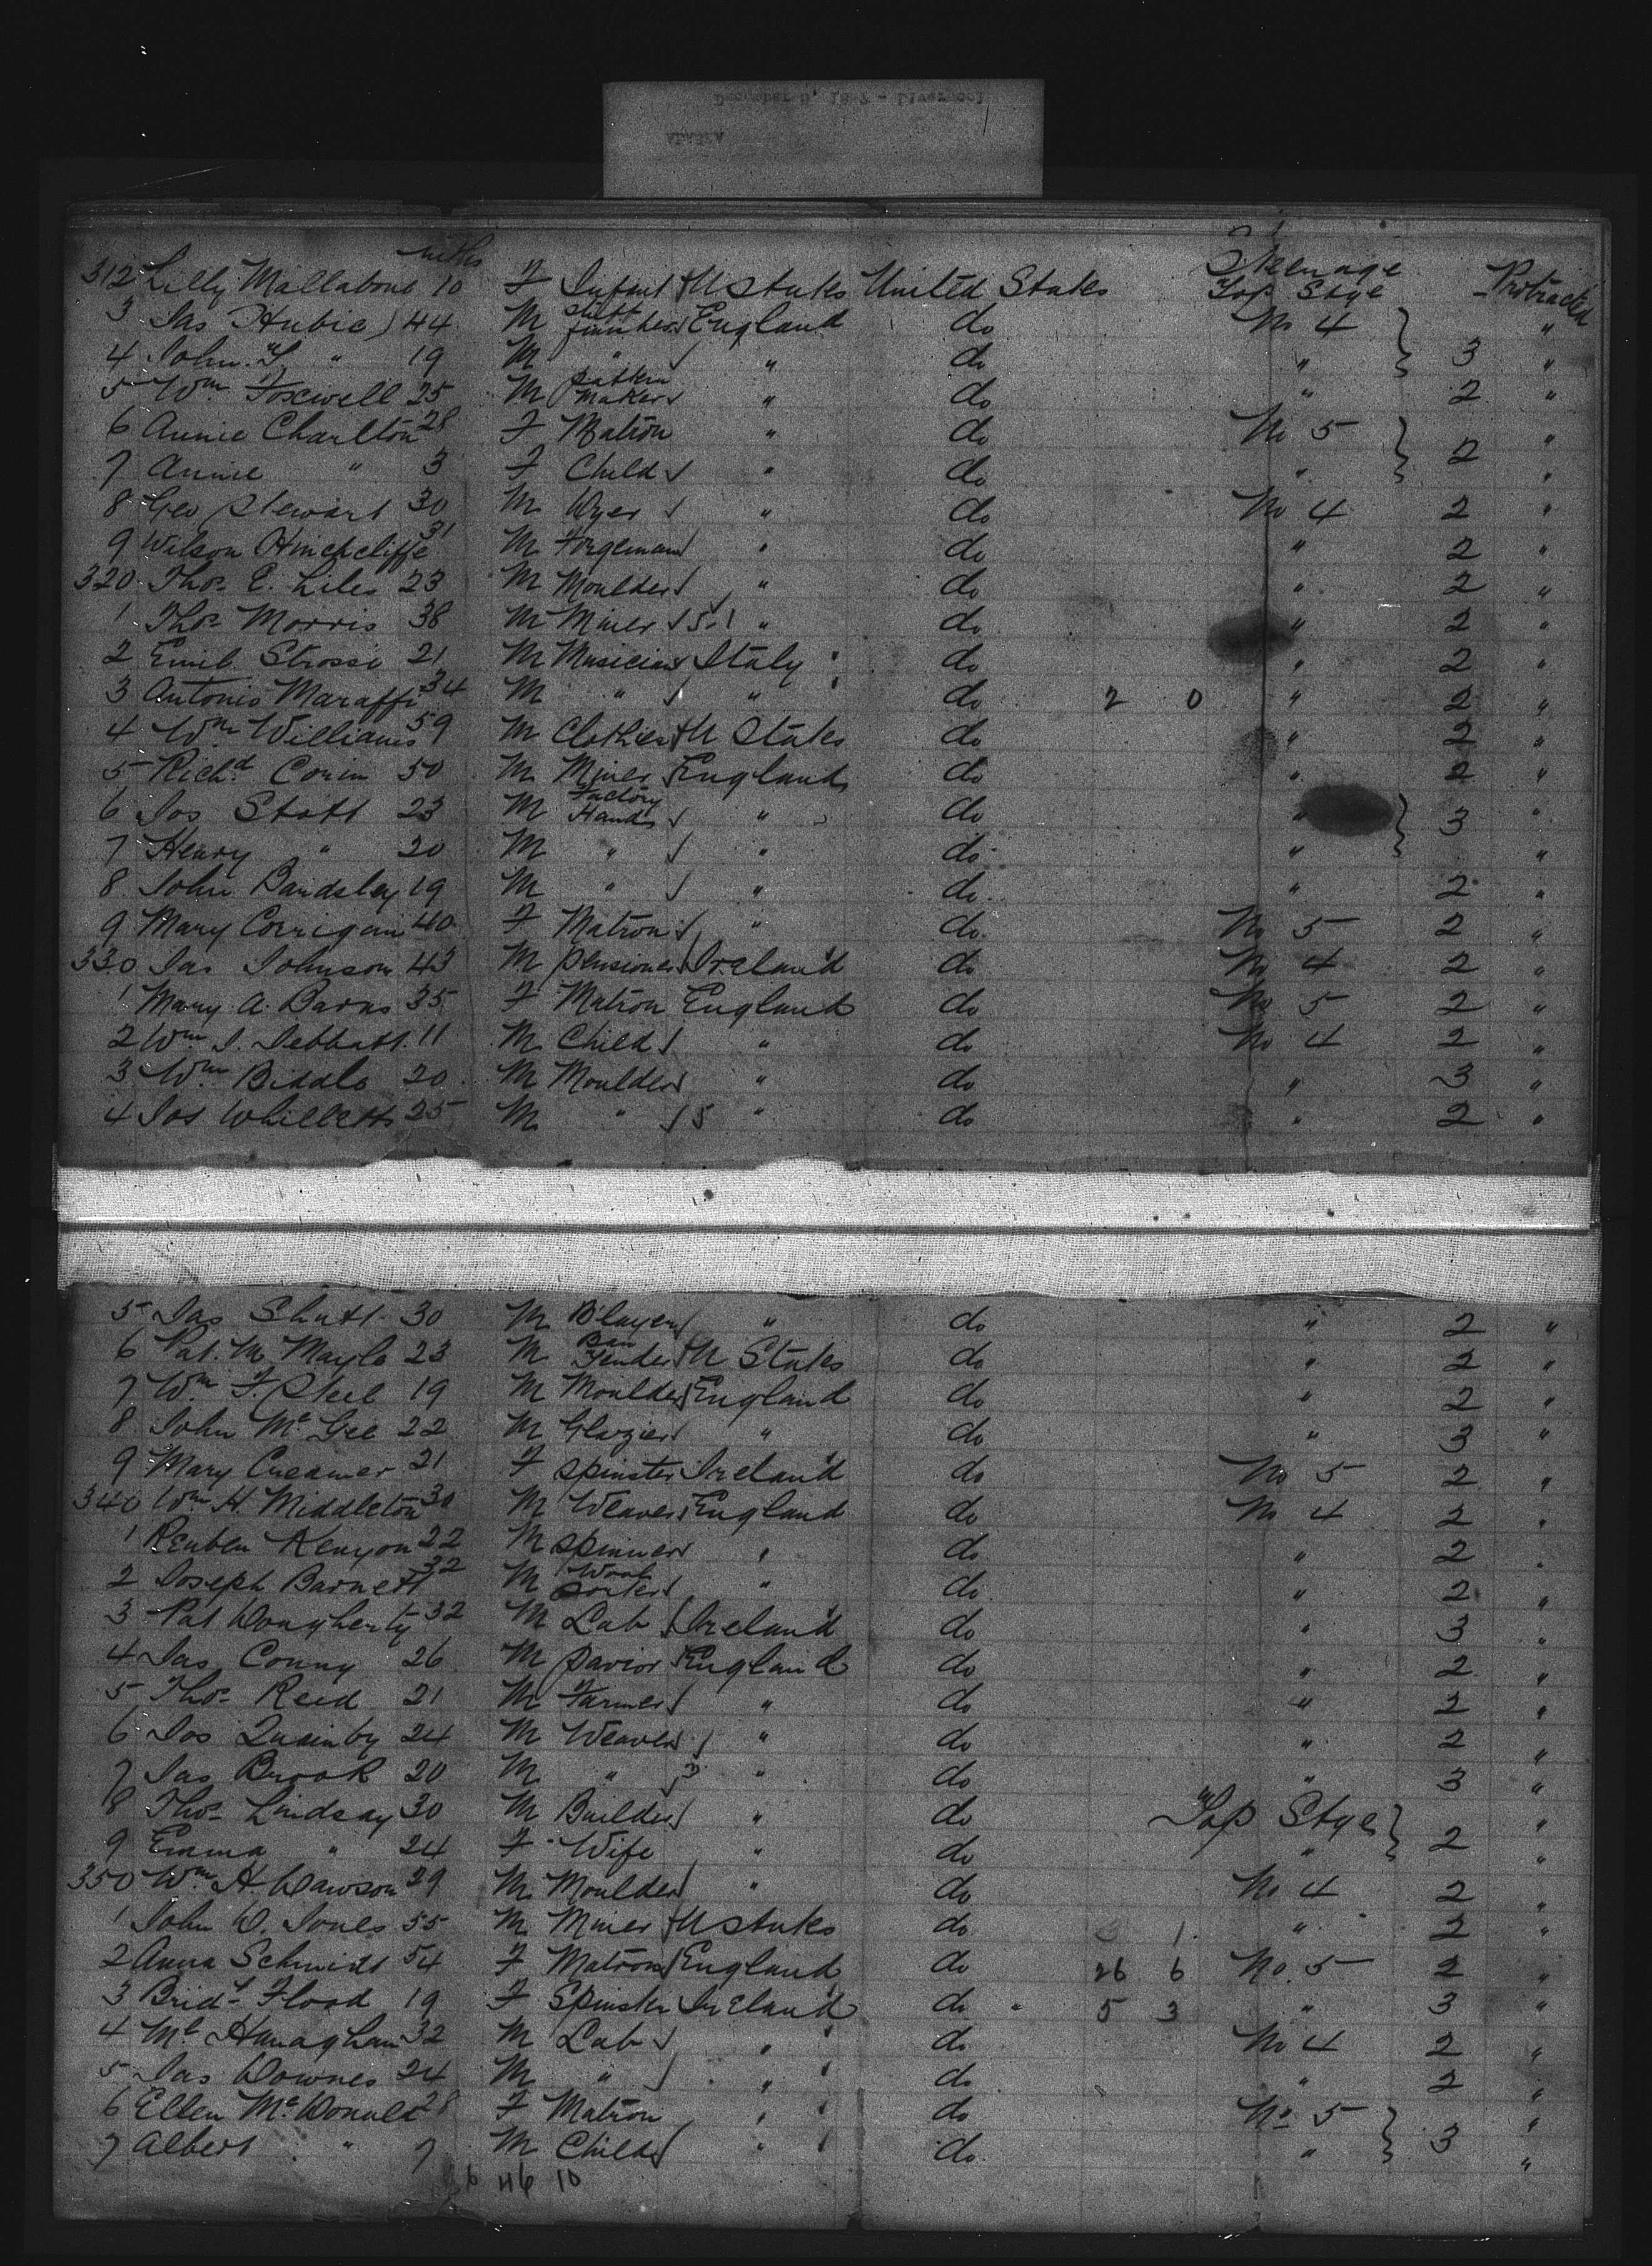 mths Steerage
312 Lilly Mallabone 10 F Infant U States United States Top Stge Protracted
3 Jas Hubie 44 M finisher England do No 4 "
4 John " 19 M " " do " 3 "
5 Wm Foxwell 25 M Pattern Maker " do " 2 "
6 Annie Charlton 28 F Matron " do No 5 "
7 Annie " 3 F Child " do " 2 "
8 Geo Stewart 30 M Dyer " do No 4 2 "
9 Wilson Hinchcliffe 31 M Forgeman " do " 2 "
320 Thos E. Liles 23 M Moulder " do " 2 "
1 Thos Morris 38 M Miner 5.1 " do " 2 "
2 Emil Strossi 21 M Musician Italy do " 2 "
3 Antonio Maraffi 34 M " " do 2 0 " 2 "
4 Wm Williams 59 M Clothier U States do " 2 "
5 Richd Corin 50 M Miner England do " 2 "
6 Jos Stott 23 M Factory Hand " do " 3 "
7 Henry " 20 M " " do " "
8 John Bardsley 19 M " " do " 2 "
9 Mary Corrigan 40 F Matron " do No 5 2 "
330 Jas Johnson 43 M Pensioner Ireland do No 4 2 "
1 Mary A. Barns 35 F Matron England do No 5 2 "
2 Wm J. 11 M Child " do No 4 2 "
3 Wm Biddle 20 M Moulder " do " 3 "
4 Jos Whilletts 25 M " 5 " do " 2 "
5 Jas Shutt 30 M B'layer " do " 2 "
6 Pat. Mc Mayle 23 M Bar Tender U States do " 2 "
7 Wm F. Steel 19 M Moulder England do " 2 "
8 John Mc Gee 22 M Glazier " do " 3 "
9 Mary Creamer 21 F Spinster Ireland do No 5 2 "
340 Wm H. Middleton 30 M Weaver England do No 4 2 "
1 Reuben Kenyon 22 M Spinner " do " 2 "
2 Joseph Barnett 32 M Wool Sorter " do " 2 "
3 Pat Dougherty 32 M Lab Ireland do " 3 "
4 Jas Conny 26 M Pavior England do " 2 "
5 Thos Reed 21 M Farmer " do " 2 "
6 Jos Quainby 24 M Weaver " do " 2 "
7 Jas Brook 20 M " " do " 3 "
8 Thos Lindsay 30 M Builder " do Top Stge "
9 Emma " 24 F Wife " do " 2 "
350 Wm H. Dawson 29 M Moulder " do No 4 2 "
1 John D. Jones 55 M Miner U States do 1 " 2 "
2 Anna Schmidt 54 F Matron England do 26 6 No. 5 2 "
3 Bridt Flood 19 F Spinster Ireland do 5 3 " 3 "
4 Ml Hanaghan 32 M Lab " do No 4 2 "
5 Jas Downes 24 M " " do " 2 "
6 Ellen McDonald 28 F Matron " do No 5 "
7 Albert " 7 M Child " do " 3 "
46 10